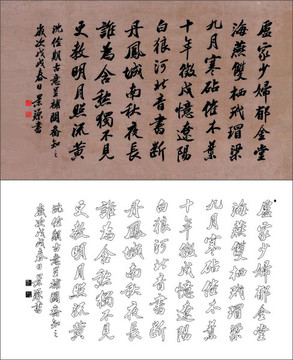 盧家少婦郁金堂
海燕雙栖玳瑁梁
九月寒砧催木葉
十年徵戍憶遼陽
白狼河北音書斷
丹鳳城南秋夜長
誰為含愁獨不見
更教明月照流黃
沈佺期古意呈補闕喬知之
歲次戊戌春日書
盧家少婦郁金堂
海燕雙栖玳瑁梁
九月寒砧催木葉
十年徵戍憶遼陽
白狼河北音書斷
丹鳳城南秋夜長
誰為含愁獨不見
更教明月照流黃
沈佺期古意呈補闕喬知之
歲次戊戌春日書